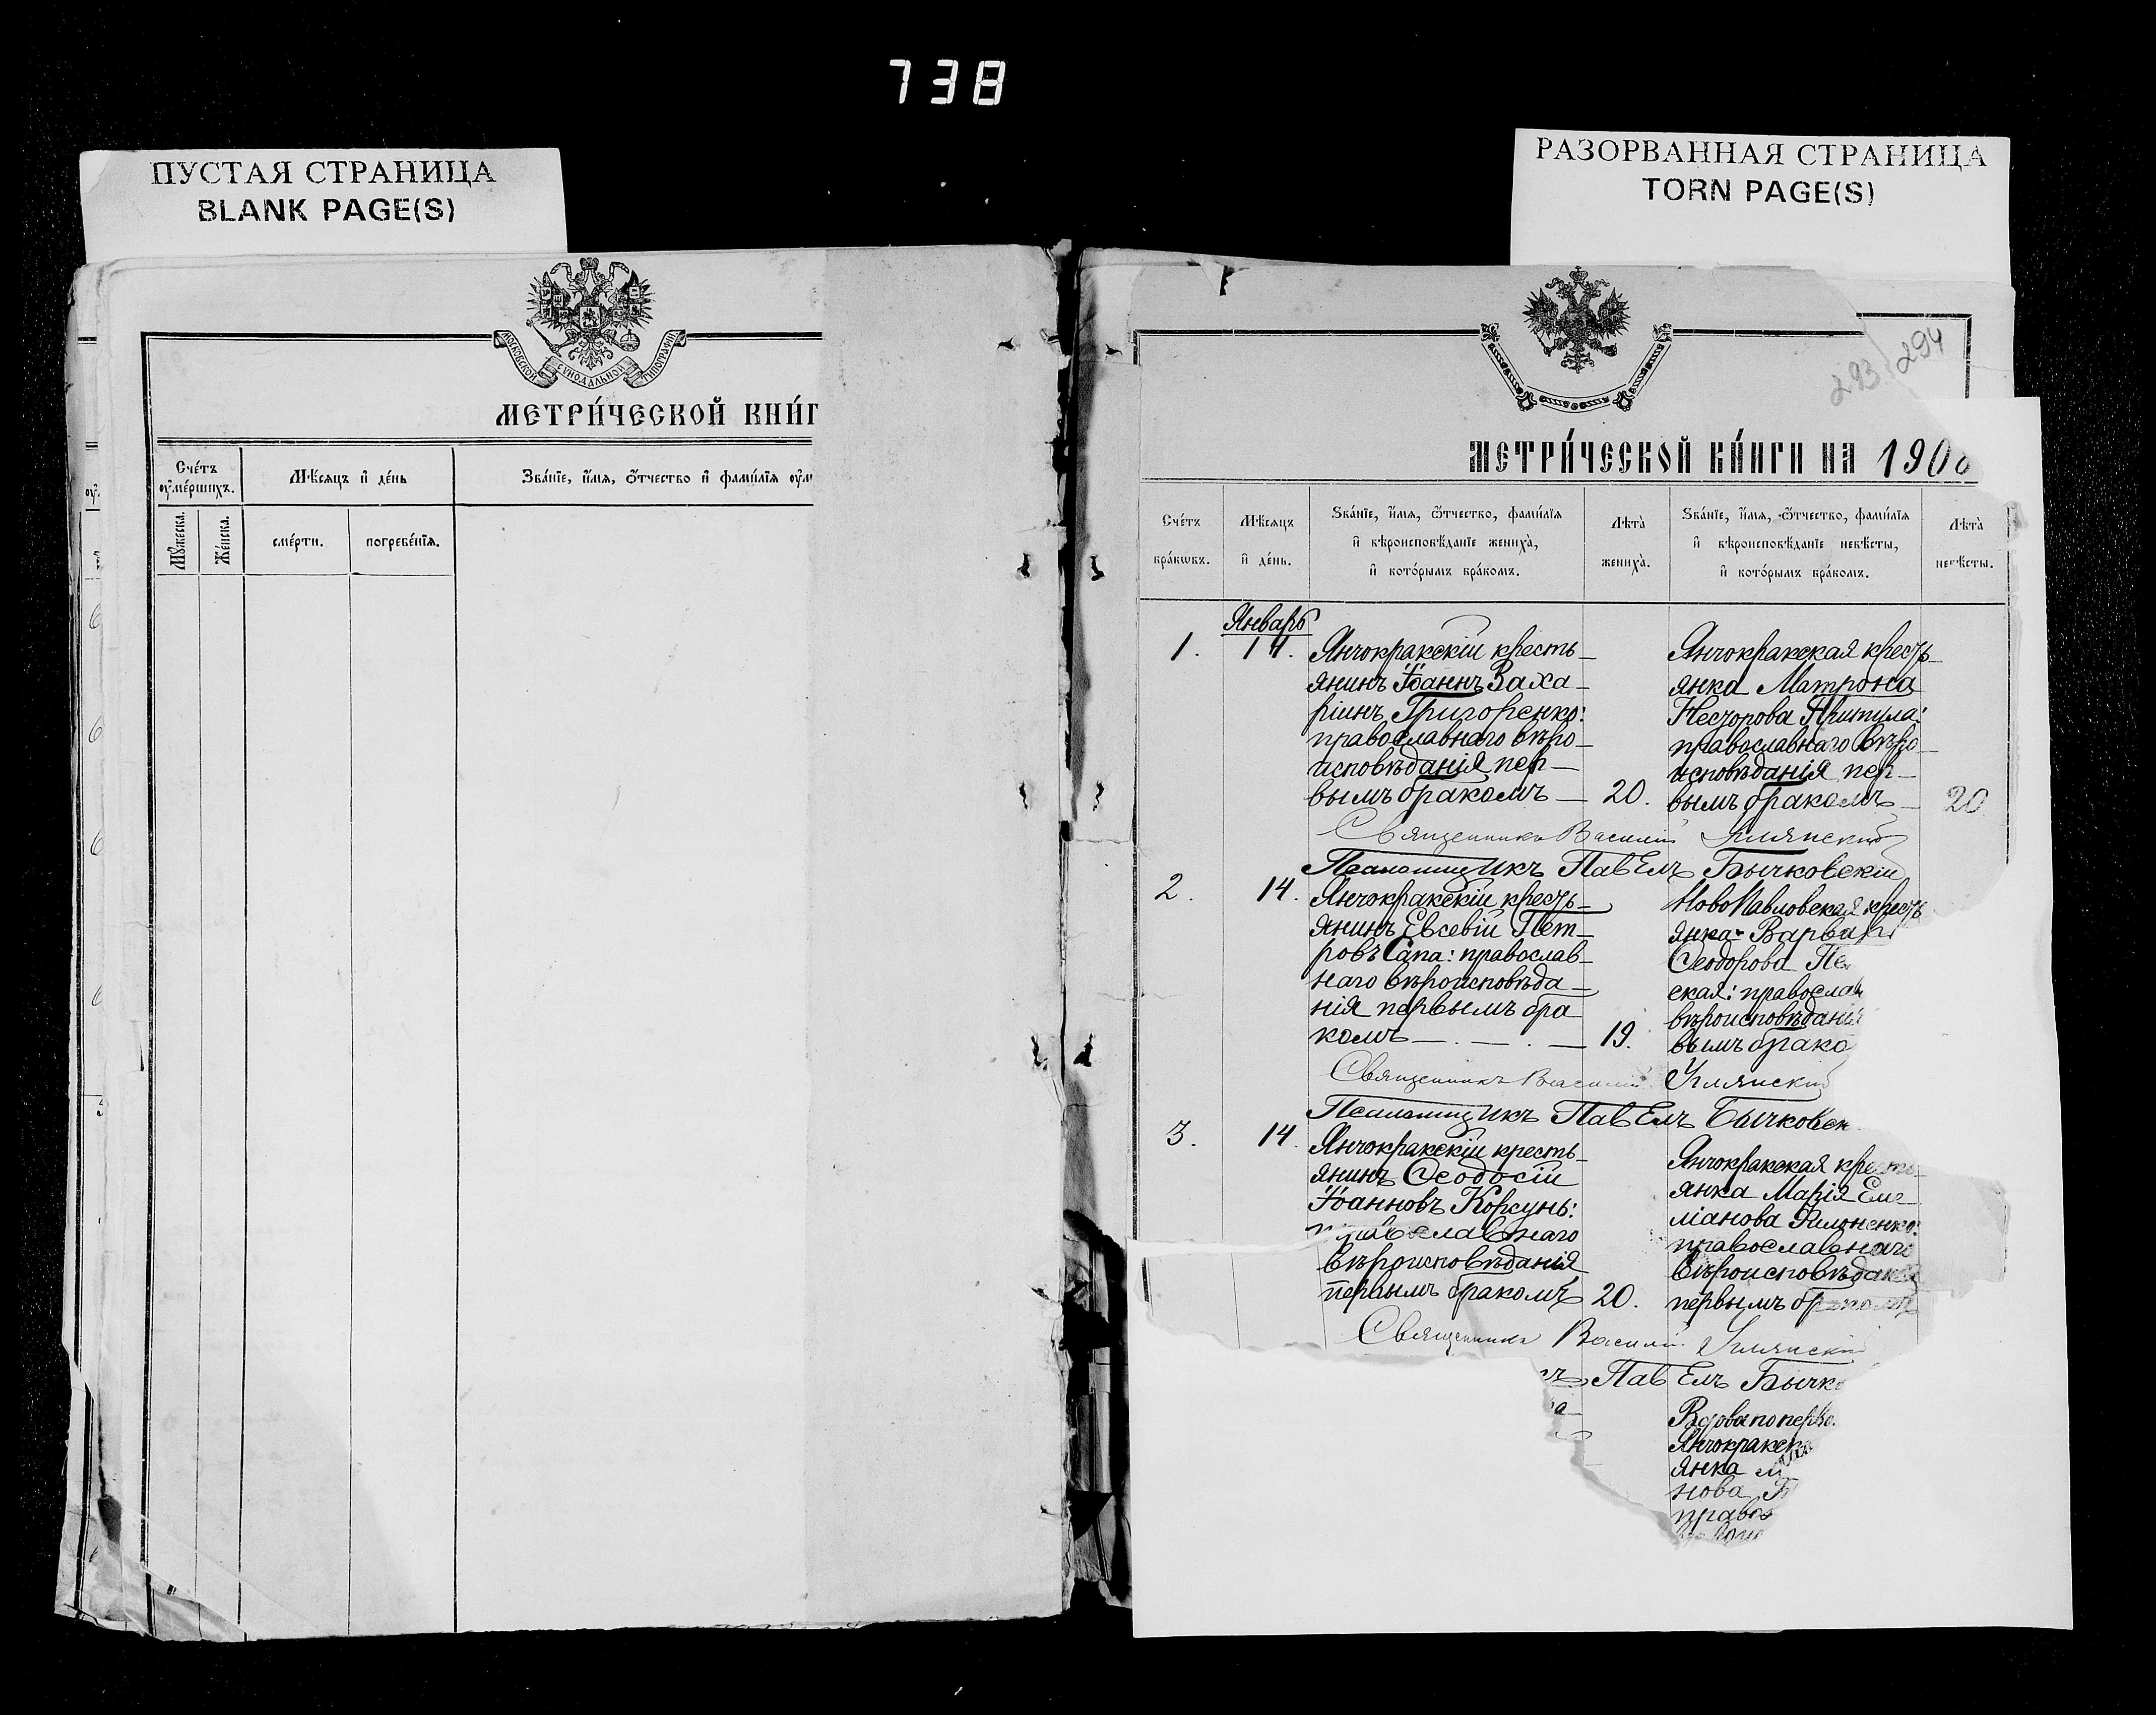 738
ПУСТАЯ СТРАНИЦА
BLANK PAGE(S)
РАЗОРВАННАЯ СТРАНИЦА
TORN PAGE(S)
МОСКОВСКОЙ СУНОДАЛЬНОЙ ТИПОГРАФІИ
МЕТРИ́ЧЕСКОЙ КНИ́Г
Сче́тъ ᲂу҆ме́ршихъ.
Мѣ́сяцъ и҆ де́нь
Зва́нїе, и҆́мѧ, ѻ҆́тчество и҆ фами́лїѧ ᲂу҆м
Мꙋ́жеска.
Же́нска.
сме́рти.
погребе́нїѧ.
293 294
МЕТРИ́ЧЕСКОЙ КНИ́ГИ НА 1908
Сче́тъ бра́кѡвъ.
Мѣ́сѧцъ и҆ де́нь.
Зва́нїе, и҆́мѧ, ѻ҆́тчество, фами́лїѧ
и҆ вѣроисповѣ́данїе жениха̀,
и҆ кото́рымъ бра́комъ.
Лѣта̀ жениха̀.
Зва́нїе, и҆́мѧ, ѻ҆́тчество, фами́лїѧ
и҆ вѣроисповѣ́данїе невѣ́сты,
и҆ кото́рымъ бра́комъ.
Лѣта̀ невѣ́сты.
Январь
1. 14.
Янчокракскій кресть-
янинъ Іоаннъ Заха-
ріинъ Григоренко:
православнаго вѣро-
исповѣданія пер-
вымъ бракомъ — 20.
Янчокракская кресть-
янка Матрона
Несторова Притула:
православнаго вѣро-
исповѣданія пер-
вымъ бракомъ — 20
Священникъ Василій
Псаломщикъ Павелъ Бычковскій
2. 14.
Янчокракскій кресть-
янинъ Евсевій Пет-
ровъ Сапа: православ-
наго вѣроисповѣда-
нія первымъ бра
комъ — . — . — 19.
НовоПавловская кресть
янка Варвар
Ѳеодорова Пе
ская: православ
вѣроисповѣданія
вымъ брако
Священникъ Василій
Псаломщикъ Павелъ Бычковск
3. 14.
Янчокракскій кресть-
янинъ Ѳеодосій
Іоанновъ Корсунь:
православнаго
вѣроисповѣданія
первымъ бракомъ 20.
Янчокракская кресть-
янка Марія Еме-
ліанова Филоненко:
православнаго
вѣроисповѣданія
первымъ бракомъ
Священникъ Василій
ъ Павелъ Бычко
а-
Вдова по перво
Янчокракск
янка
нова
правос